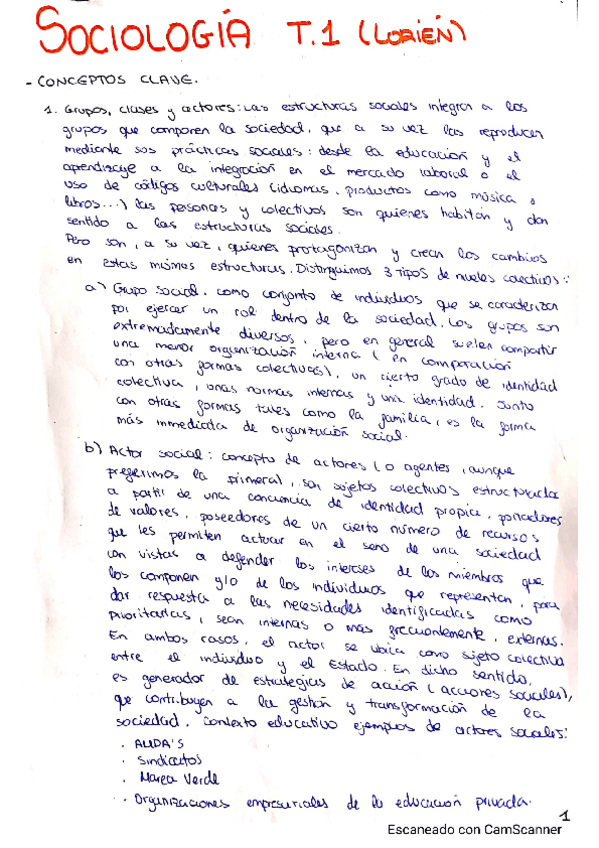 SOCIOLOGÍA T.1 (LORIÉN)
- CONCEPTOS CLAVE.
1. Grupos, clases y actores: Las estructuras sociales integran a los
grupos que componen la sociedad, que a su vez las reproducen
mediante sus prácticas sociales: desde la educación y el
aprendizaje a la integración en el mercado laboral o el
uso de códigos culturales (idiomas, productos como música o
libros...) las personas y colectivos son quienes habitan y dan
sentido a las estructuras sociales.
Pero son, a su vez, quienes protagonizan y crean los cambios
en estas mismas estructuras. Distinguimos 3 tipos de niveles colectivos:
a) Grupo social. como conjunto de individuos que se caracterizan
por ejercer un rol dentro de la sociedad. Los grupos son
extremadamente diversos, pero en general suelen compartir
una menor organización interna (en comparación
con otras formas colectivas), un cierto grado de identidad
colectiva, unas normas internas y una identidad. Junto
con otras formas tales como la familia, es la forma
más inmediata de organización social.
b) Actor social: concepto de actores (o agentes, aunque
preferimos la primera), son sujetos colectivos estructurados
a partir de una conciencia de identidad propia, portadores
de valores, poseedores de un cierto número de recursos
que les permiten actuar en el seno de una sociedad
con vistas a defender los intereses de los miembros que
los componen y/o de los individuos que representan, para
dar respuesta a las necesidades identificadas como
prioritarias, sean internas o más frecuentemente, externas.
En ambos casos, el actor se ubica como sujeto colectivo
entre el individuo y el Estado. En dicho sentido,
es generador de estrategias de acción (acciones sociales),
que contribuyen a la gestión y transformación de la
sociedad. Contexto educativo ejemplos de actores sociales:
· Sindicatos
· Marea Verde
· Organizaciones empresariales de la educación privada.
1
Escaneado con CamScanner